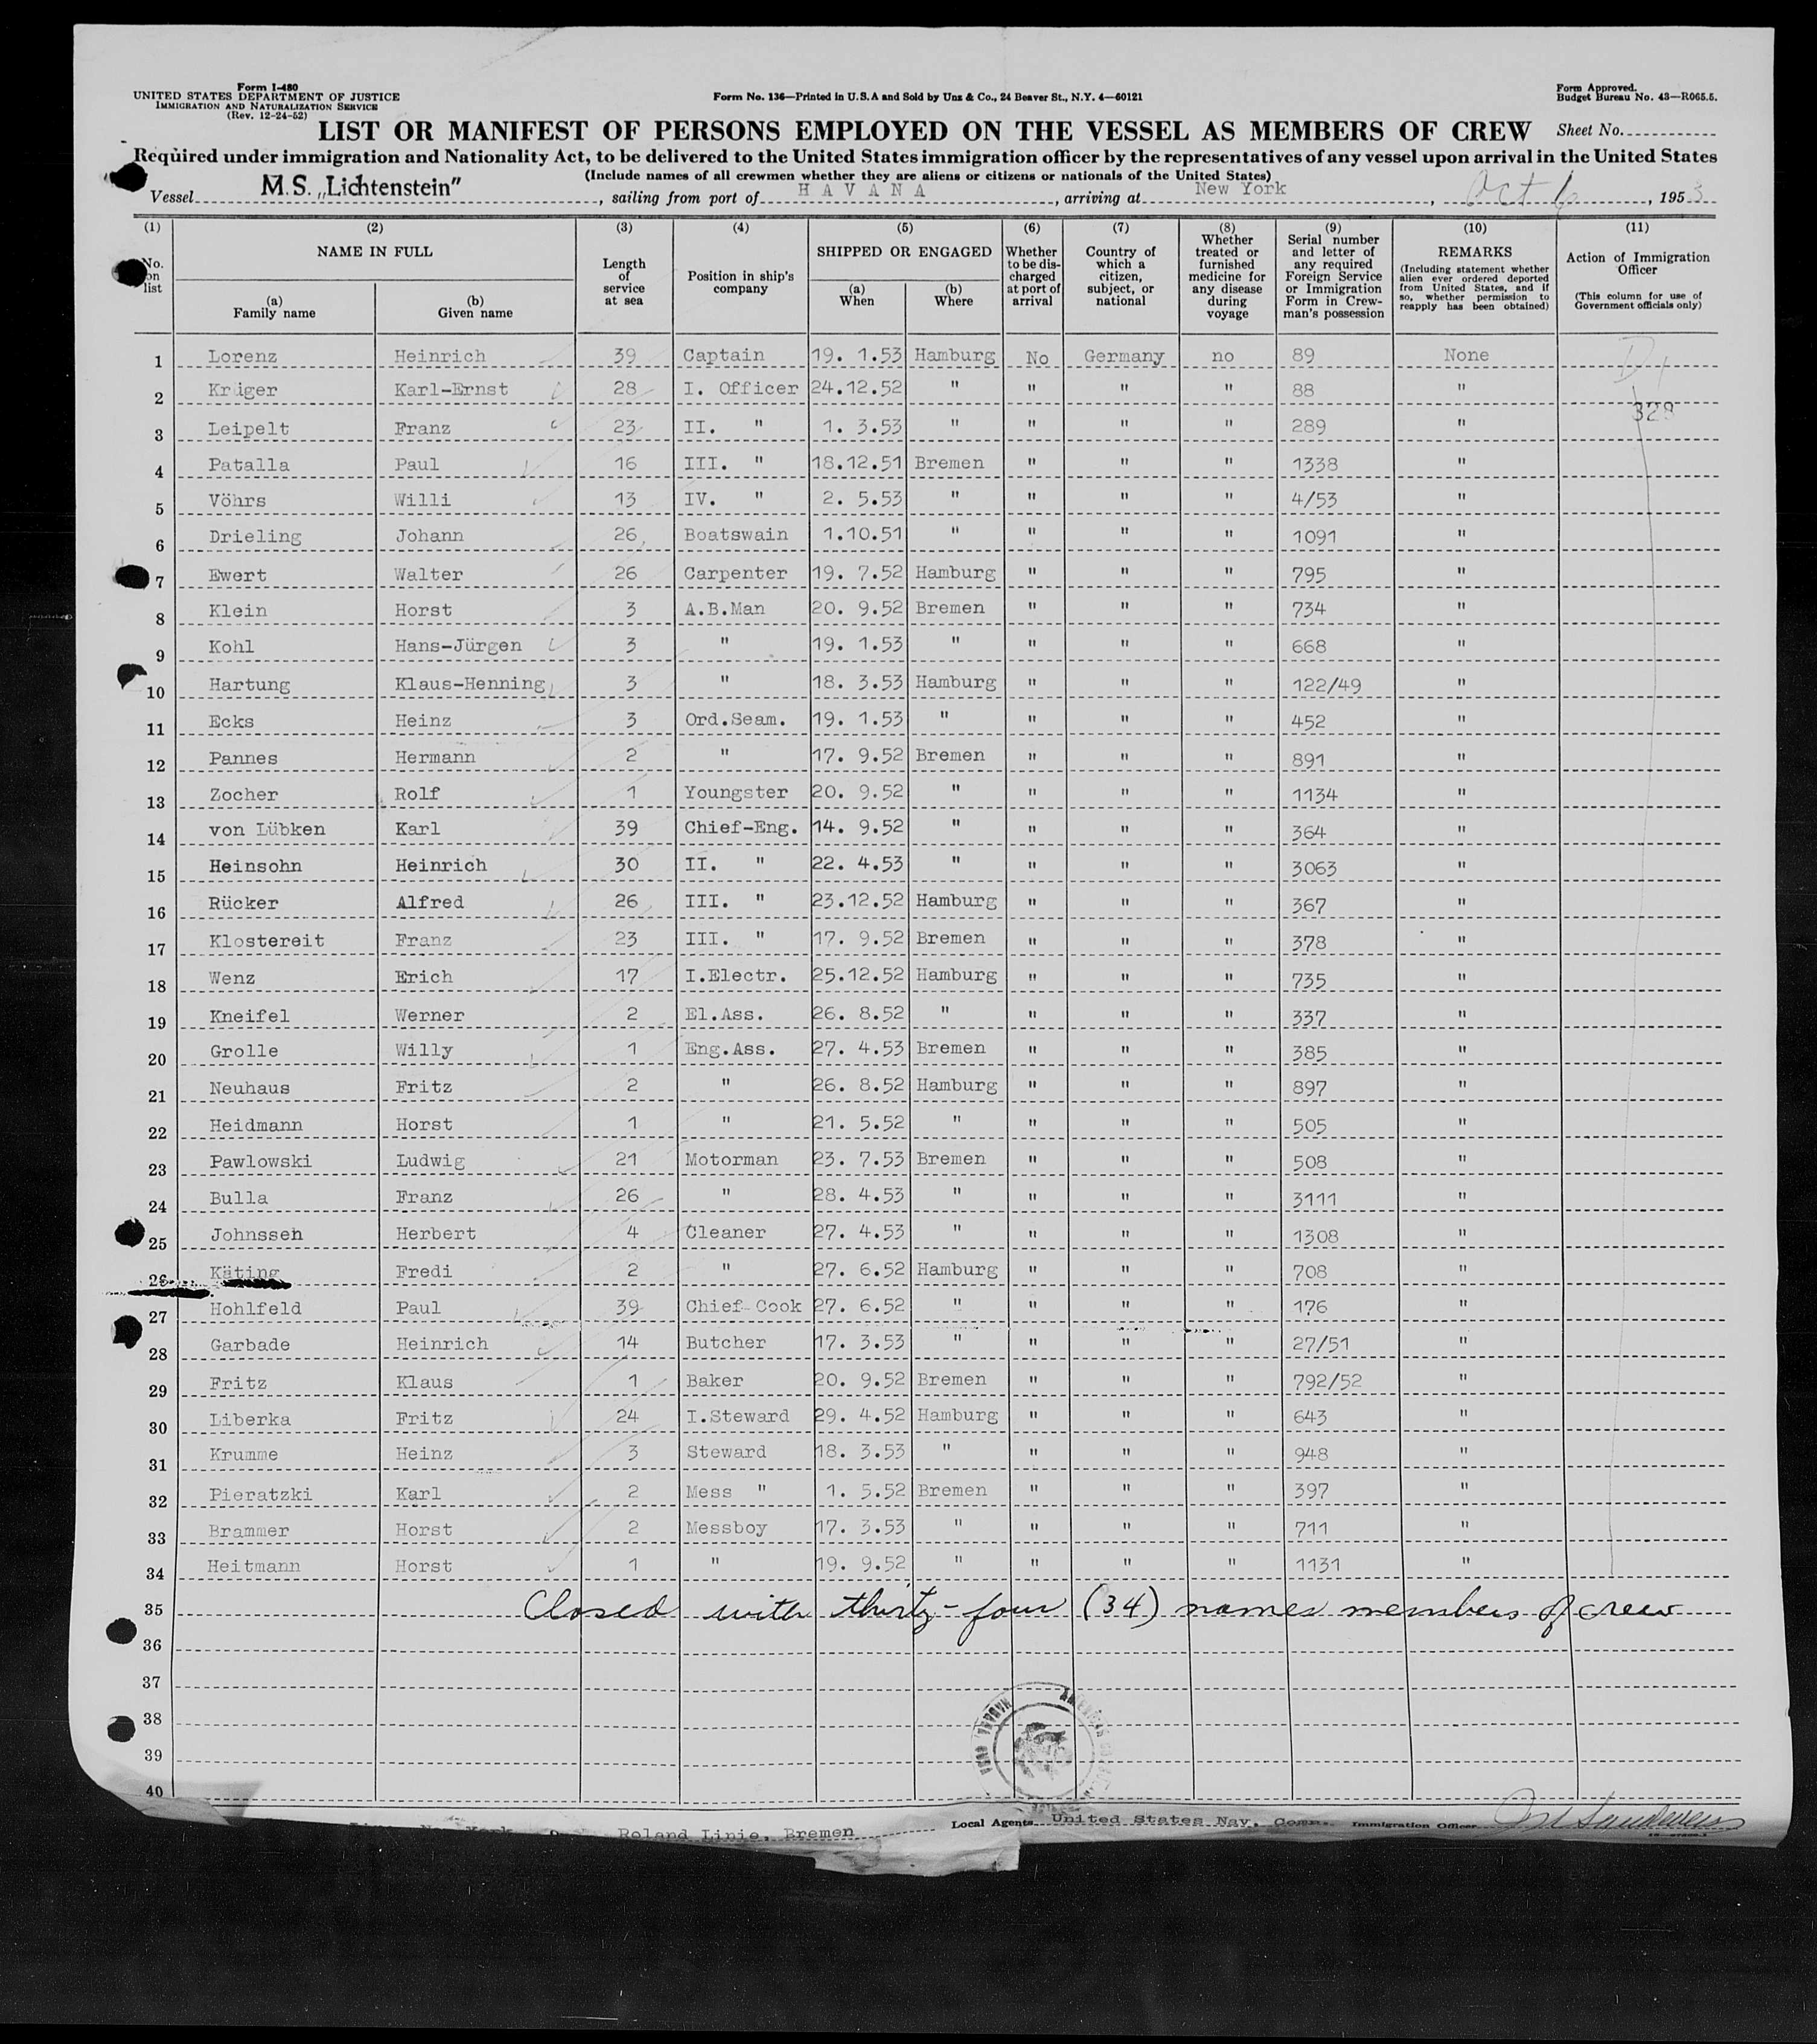 Form I-480
UNITED STATES DEPARTMENT OF JUSTICE
IMMIGRATION AND NATURALIZATION SERVICE
(Rev. 12-24-52)
Form No. 136—Printed in U.S.A and Sold by Unz & Co., 24 Beaver St., N.Y. 4—60121
Form Approved.
Budget Bureau No. 43—R065.5.
LIST OR MANIFEST OF PERSONS EMPLOYED ON THE VESSEL AS MEMBERS OF CREW Sheet No.
Required under immigration and Nationality Act, to be delivered to the United States immigration officer by the representatives of any vessel upon arrival in the United States
(Include names of all crewmen whether they are aliens or citizens or nationals of the United States)
Vessel M.S. „Lichtenstein", sailing from port of HAVANA, arriving at New York, Oct 6, 1953
(1) No. on list
(2) NAME IN FULL
(a) Family name
(b) Given name
(3) Length of service at sea
(4) Position in ship's company
(5) SHIPPED OR ENGAGED
(a) When
(b) Where
(6) Whether to be discharged at port of arrival
(7) Country of which a citizen, subject, or national
(8) Whether treated or furnished medicine for any disease during voyage
(9) Serial number and letter of any required Foreign Service or Immigration Form in Crewman's possession
(10) REMARKS
(Including statement whether alien ever ordered deported from United States, and if so, whether permission to reapply has been obtained)
(11) Action of Immigration Officer
(This column for use of Government officials only)
1 Lorenz Heinrich 39 Captain 19. 1.53 Hamburg No Germany no 89 None
2 Krüger Karl-Ernst 28 I. Officer 24.12.52 " " " " 88 "
328
3 Leipelt Franz 23 II. " 1. 3.53 " " " " 289 "
4 Patalla Paul 16 III. " 18.12.51 Bremen " " " 1338 "
5 Vöhrs Willi 13 IV. " 2. 5.53 " " " " 4/53 "
6 Drieling Johann 26 Boatswain 1.10.51 " " " " 1091 "
7 Ewert Walter 26 Carpenter 19. 7.52 Hamburg " " " 795 "
8 Klein Horst 3 A.B.Man 20. 9.52 Bremen " " " 734 "
9 Kohl Hans-Jürgen 3 " 19. 1.53 " " " " 668 "
10 Hartung Klaus-Henning 3 " 18. 3.53 Hamburg " " " 122/49 "
11 Ecks Heinz 3 Ord.Seam. 19. 1.53 " " " " 452 "
12 Pannes Hermann 2 " 17. 9.52 Bremen " " " 891 "
13 Zocher Rolf 1 Youngster 20. 9.52 " " " " 1134 "
14 von Lübken Karl 39 Chief-Eng. 14. 9.52 " " " " 364 "
15 Heinsohn Heinrich 30 II. " 22. 4.53 " " " " 3063 "
16 Rücker Alfred 26 III. " 23.12.52 Hamburg " " " 367 "
17 Klostereit Franz 23 III. " 17. 9.52 Bremen " " " 378 "
18 Wenz Erich 17 I.Electr. 25.12.52 Hamburg " " " 735 "
19 Kneifel Werner 2 El.Ass. 26. 8.52 " " " " 337 "
20 Grolle Willy 1 Eng.Ass. 27. 4.53 Bremen " " " 385 "
21 Neuhaus Fritz 2 " 26. 8.52 Hamburg " " " 897 "
22 Heidmann Horst 1 " 21. 5.52 " " " " 505 "
23 Pawlowski Ludwig 21 Motorman 23. 7.53 Bremen " " " 508 "
24 Bulla Franz 26 " 28. 4.53 " " " " 3111 "
25 Johnssen Herbert 4 Cleaner 27. 4.53 " " " " 1308 "
26 Käting Fredi 2 " 27. 6.52 Hamburg " " " 708 "
27 Hohlfeld Paul 39 Chief-Cook 27. 6.52 " " " " 176 "
28 Garbade Heinrich 14 Butcher 17. 3.53 " " " " 27/51 "
29 Fritz Klaus 1 Baker 20. 9.52 Bremen " " " 792/52 "
30 Liberka Fritz 24 I.Steward 29. 4.52 Hamburg " " " 643 "
31 Krumme Heinz 3 Steward 18. 3.53 " " " " 948 "
32 Pieratzki Karl 2 Mess " 1. 5.52 Bremen " " " 397 "
33 Brammer Horst 2 Messboy 17. 3.53 " " " " 711 "
34 Heitmann Horst 1 " 19. 9.52 " " " " 1131 "
35 Closed with thirty-four (34) names members of crew
36
37
38
39
40
Roland Linie, Bremen Local Agents United States Nav. Comp. Immigration Officer